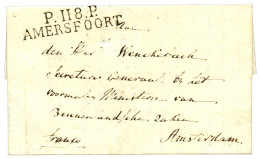 P.118.P.
AMERSFOORT
Aan
den Heer Wenckebach
Secretaris Generaal bij het
voormalig Ministerie van
Binnenlandsche zaken
franco Amsterdam